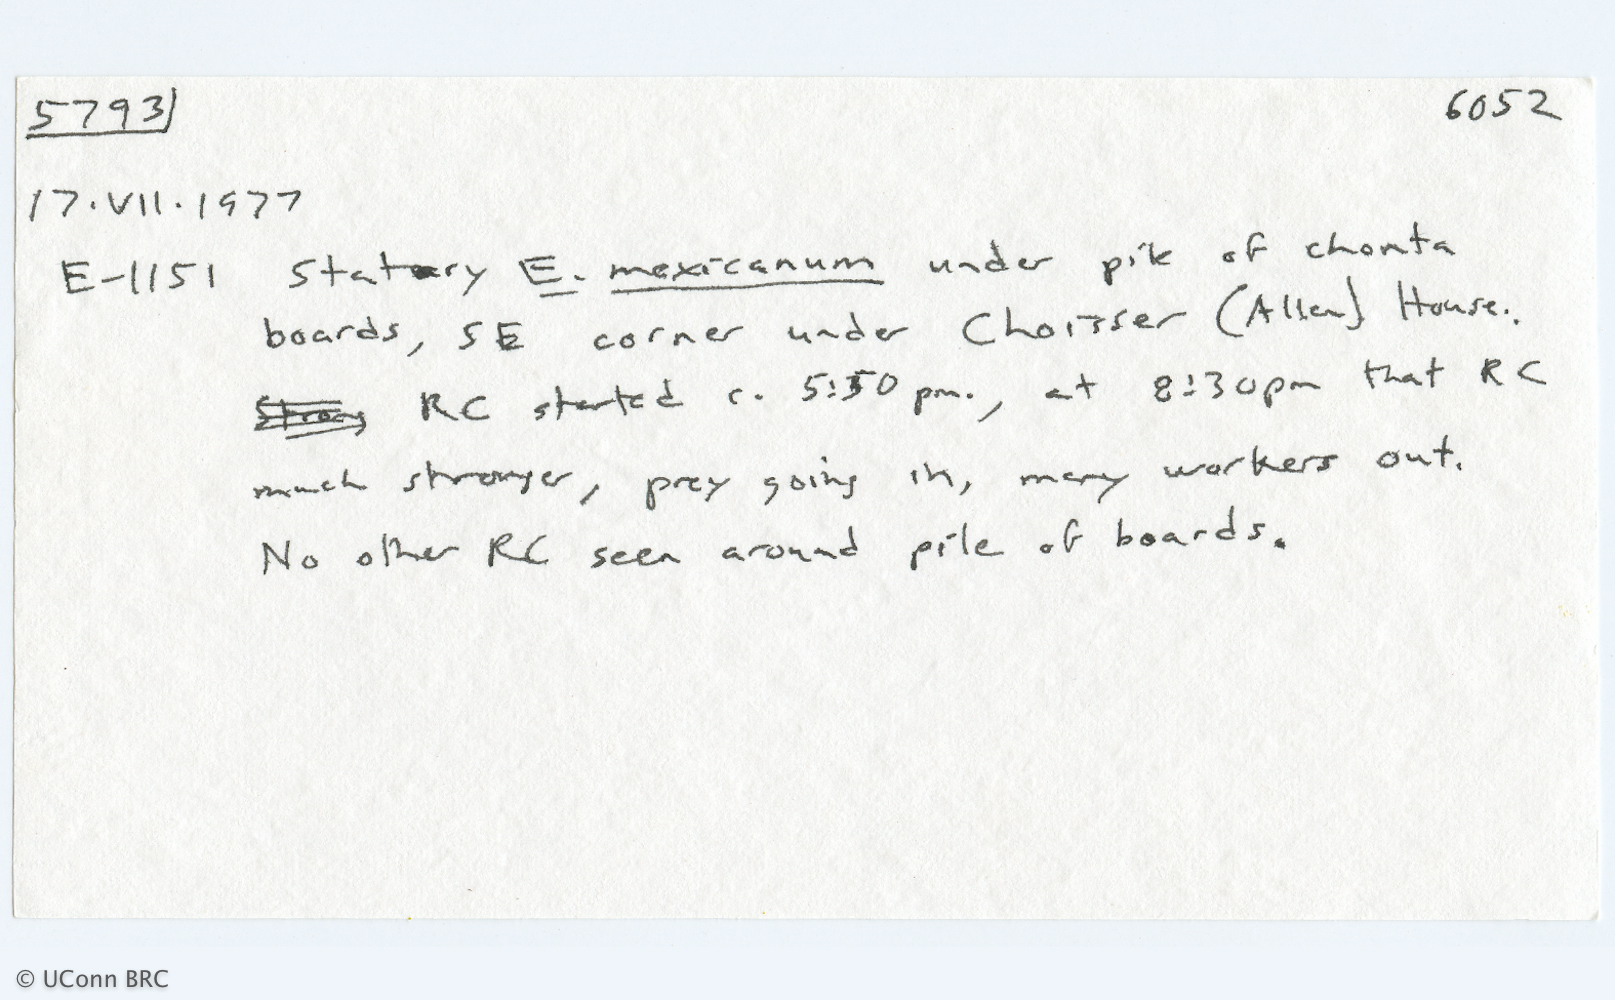 5793 6052
17.VII.1977
E-1151 Statary E. mexicanum under pile of chonta
boards, SE corner under Choisser (Allen) House.
Strong RC started c. 5:50 pm., at 8:30pm that RC
much stronger, prey going in, many workers out.
No other RC seen around pile of boards.
© UConn BRC